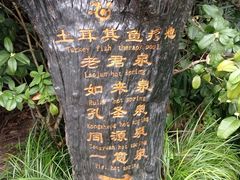 土耳其鱼疗池
Turkey fish therapy pool
老君泉
Laojun hot spring
如来泉
Rulai hot spring
孔圣泉
Kongsheng hot spring
同源泉
Tongyuan hot spring
一意泉
Yiyi hot spring